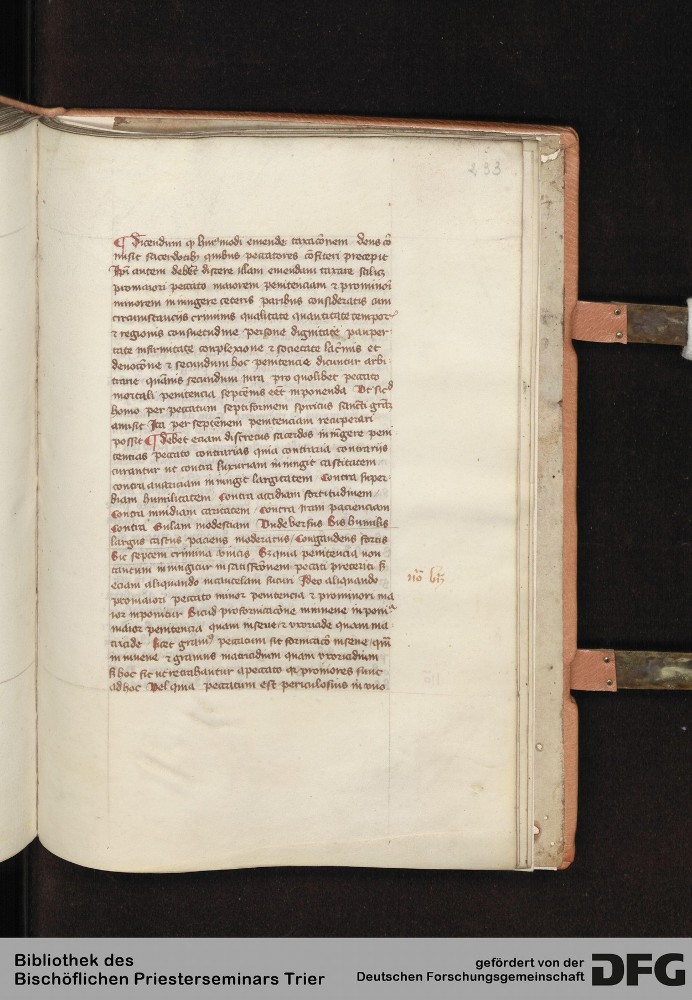 233
¶ Dicendum qͣ huiͥmodi emende taxacōnem deus cō
misit sacerdotibꝫ quibus peccatores cōfiteri precepit
autem debēt discere illam emendam taxare scilicꝫ
pro maiori peccato maiorem penitenciam ⁊ pro minori
minorem iniungere ceteris paribus consideratis cum
circumstanciis criminis qualitate quantitate tempor
⁊ regionis consuetudine persone dignitate pauper
tate infirmitate conplexione ⁊ societate lacͥmis et
deuocōne ⁊ secundum hoc penitencie dicuntur arbi
trarie quāuis secundum iura pro quolibet peccato
mortali penitencia septēnis eēt inponenda Vt sicͩ
homo per peccatum septiformem spiritus sancti grāꝫ
amisit Ita per septēnem penitenciam recuperari
possit ¶ debet eciam discretus sacerdos iniūgere peni
tencias peccato contrarias quia contraria contrariis
curantur ut contra luxuriam iniungit castitatem
contra auariciam iniungit largitatem Contra super
biam humilitatem Contra accidiam fortitudinem
Contra inuidiam caritatem Contra iram pacienciam
Contra Gulam modestiam Vnde versus Sis humilis
largus castus paciens moderatus Congaudens fortis
Sic septem crimina vincis Et quia penitencia non
tantum iniungitur in satisfcōnem peccati preteriti sꝫ
eciam aliquando in cautelam futuri Ideo aliquando
pro maiori peccato minor penitencia ⁊ pro minori ma
ior inponitur Sicud pro fornicacōne in iuuene inponiͭ
maior penitencia quam in sene ⁊ vxoriade quam ma
tricide licet grauiꝰ peccatum sit fornicacō in sene qͫ
in iuuene ⁊ grauius matricidium quam vxoricidium
sꝫ hoc sit ut retrahantur a peccato qꝛ proniores sunt
ad hoc Vel quia peccatum est periculosius in vno
nō bn̄
Bibliothek des
Bischöflichen Priesterseminars Trier
gefördert von der
Deutschen Forschungsgemeinschaft
DFG